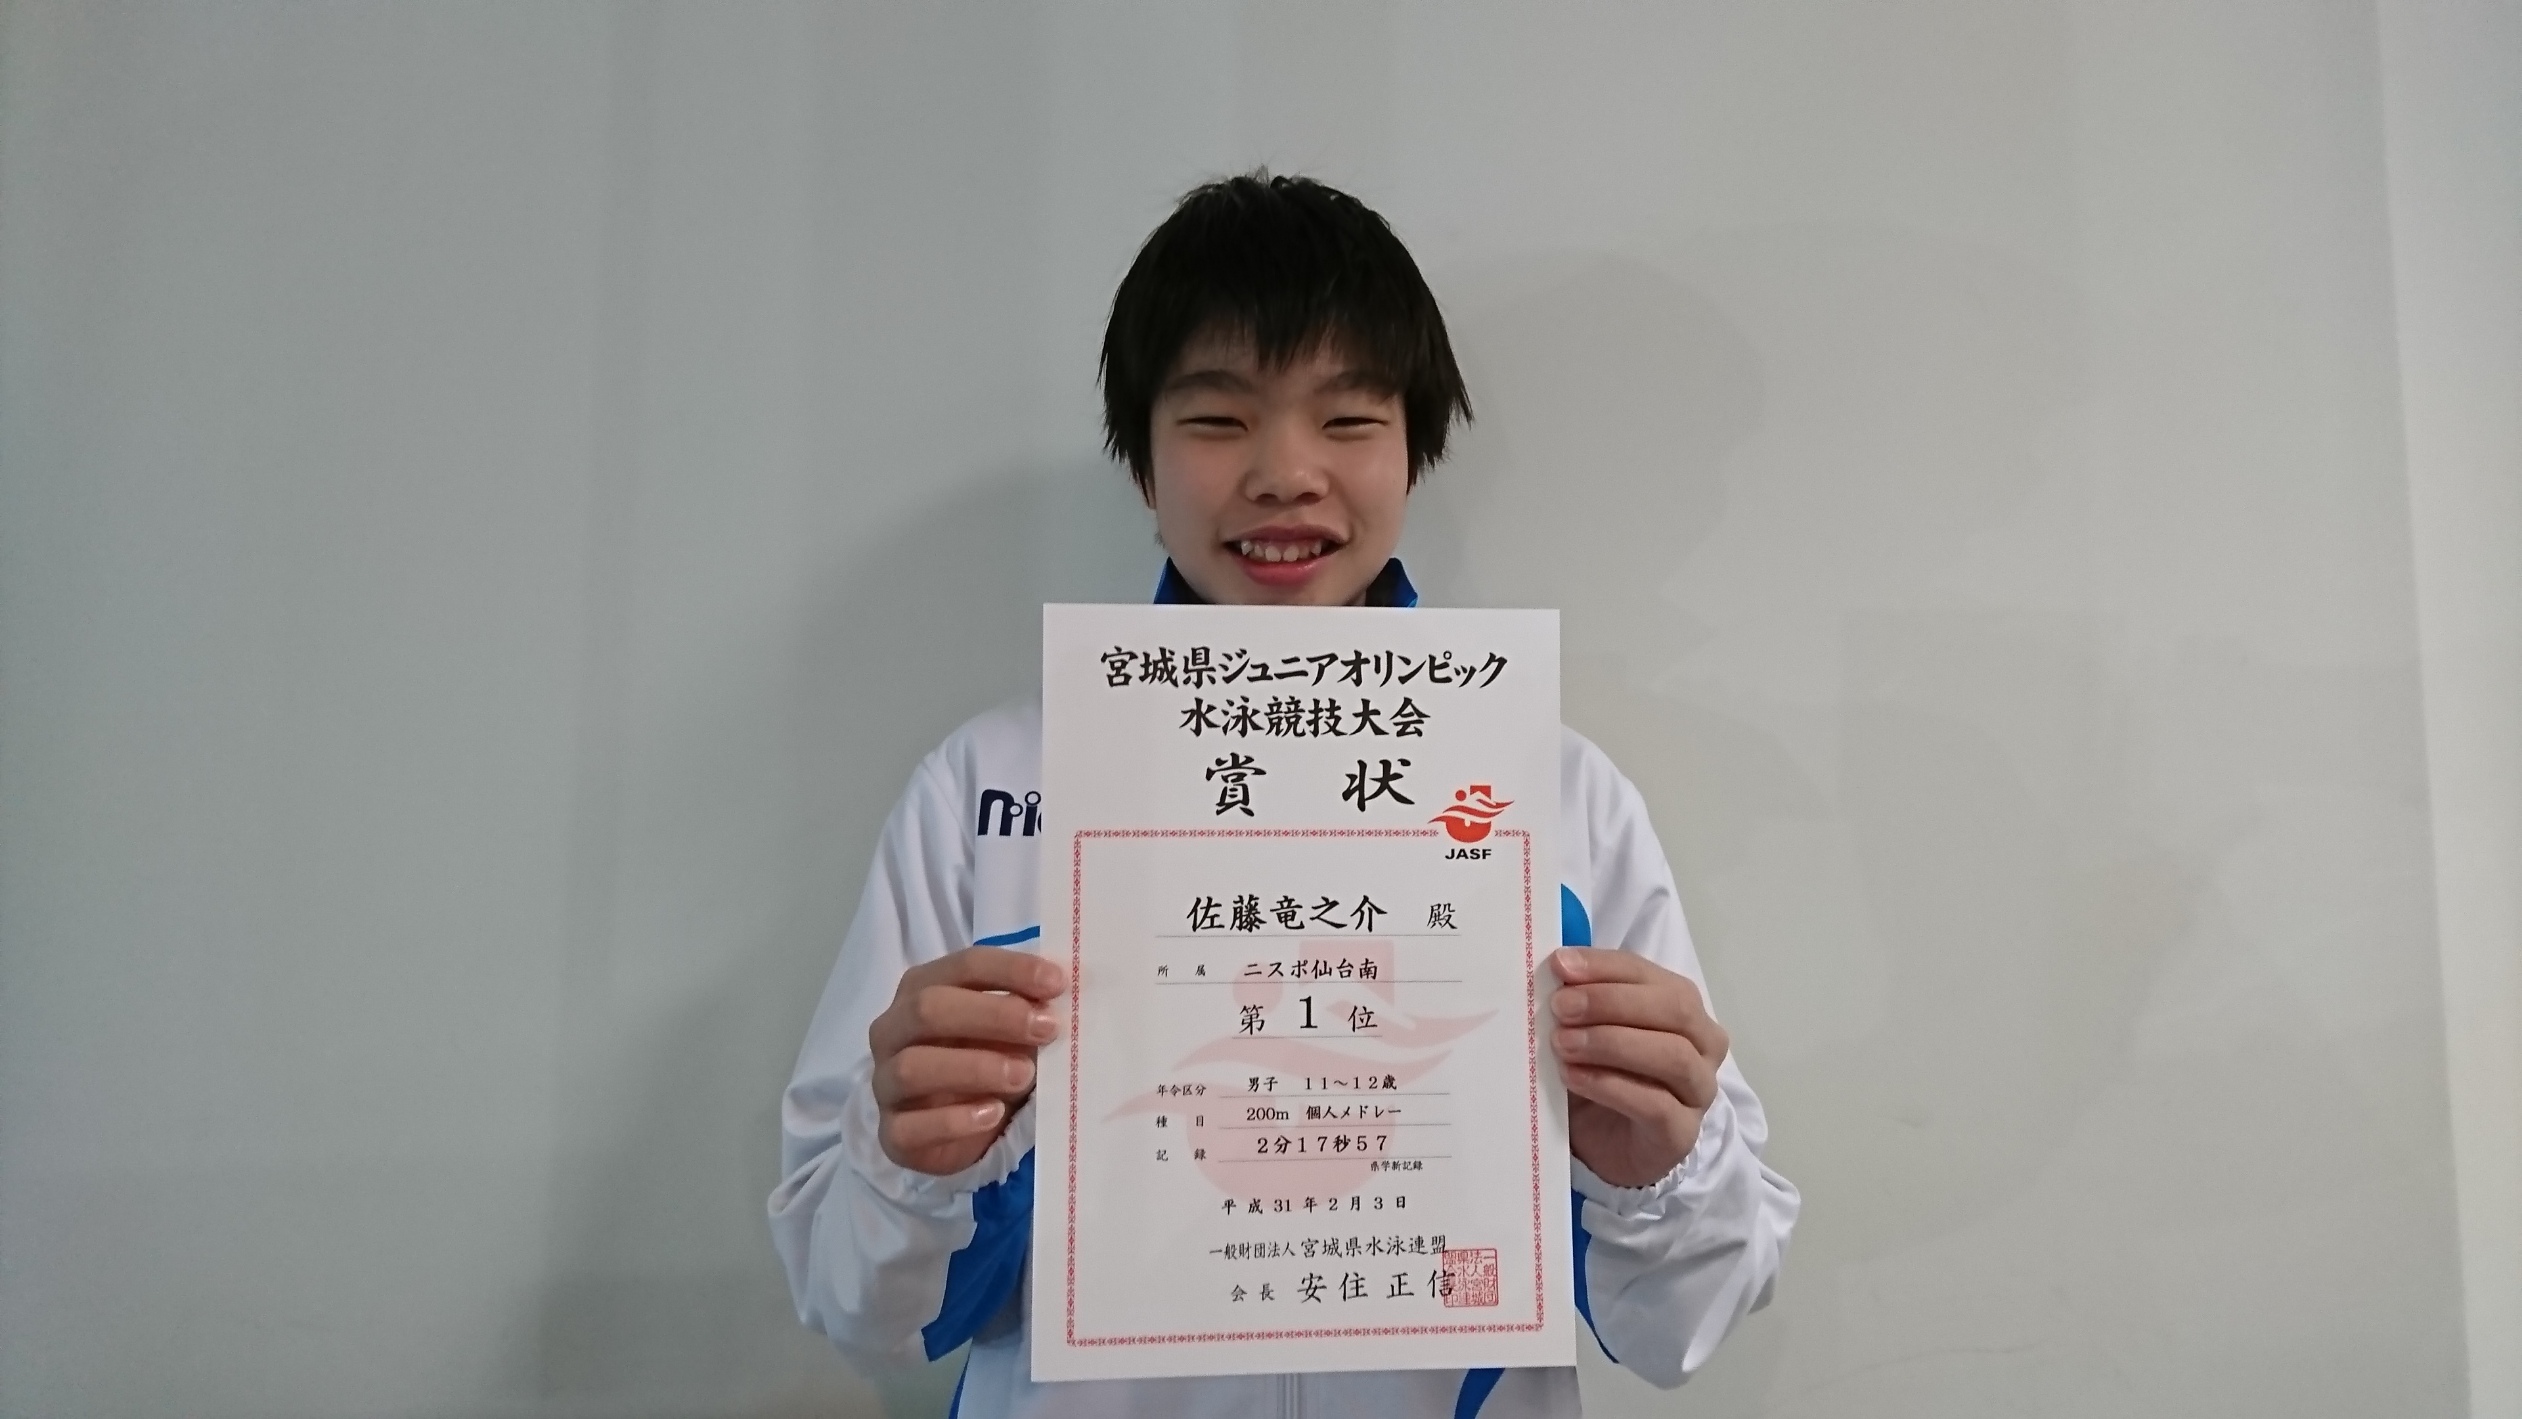 宮城県ジュニアオリンピック
水泳競技大会
賞 状
JASF
佐藤竜之介 殿
所 属 ニスポ仙台南
第 1 位
年令区分 男子 11～12歳
種 目 200m 個人メドレー
記 録 2分17秒57
県学新記録
平成 31 年 2 月 3 日
一般財団法人 宮城県水泳連盟
会 長 安 住 正 信